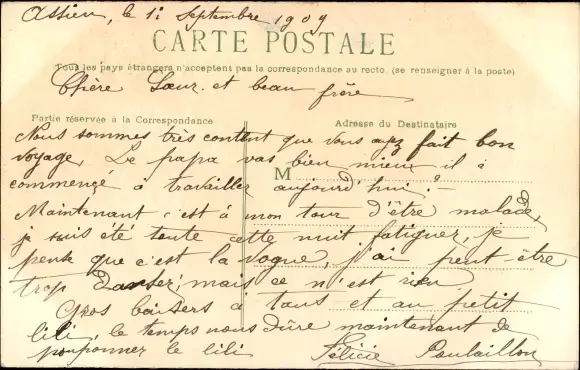 Assieu, le 1: Septembre 1909
CARTE POSTALE
Tous les pays étrangers n'acceptent pas la correspondance au recto. (se renseigner à la poste)
Chère Sœur. et beau frère
Partie réservée à la Correspondance
Adresse du Destinataire
Nous sommes très content que vous ayez fait bon
voyage, Le papa vas bien mieux il à
M
commencé à travailler aujourd'hui?-
Maintenant c'est à mon tour d'être malade,
je suis été toute cette nuit fatiguer, je
pense que c'est la vogue, j'ai peut-être
trop danser, mais ce n'est rien
Gros baisers à tous et au petit
lili, le temps nous dûre maintenant de
pouponner le lili
Félicie Poulaillon